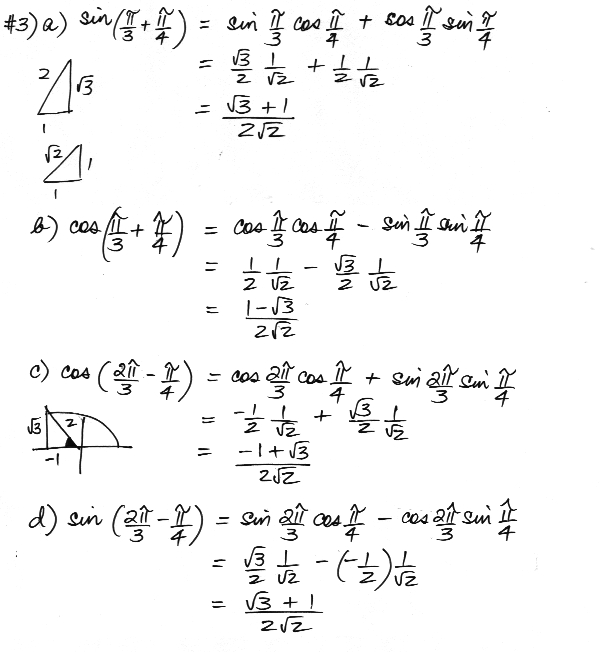 #3) a) sin(π/3 + π/4) = sin π/3 cos π/4 + cos π/3 sin π/4
= √3/2 1/√2 + 1/2 1/√2
2 √3
= √3 + 1 / 2√2
1
√2 1
1
b) cos(π/3 + π/4) = cos π/3 cos π/4 - sin π/3 sin π/4
= 1/2 1/√2 - √3/2 1/√2
= 1-√3 / 2√2
c) cos (2π/3 - π/4) = cos 2π/3 cos π/4 + sin 2π/3 sin π/4
√3 2
= -1/2 1/√2 + √3/2 1/√2
-1
= -1+√3 / 2√2
d) sin (2π/3 - π/4) = sin 2π/3 cos π/4 - cos 2π/3 sin π/4
= √3/2 1/√2 - (-1/2) 1/√2
= √3 + 1 / 2√2